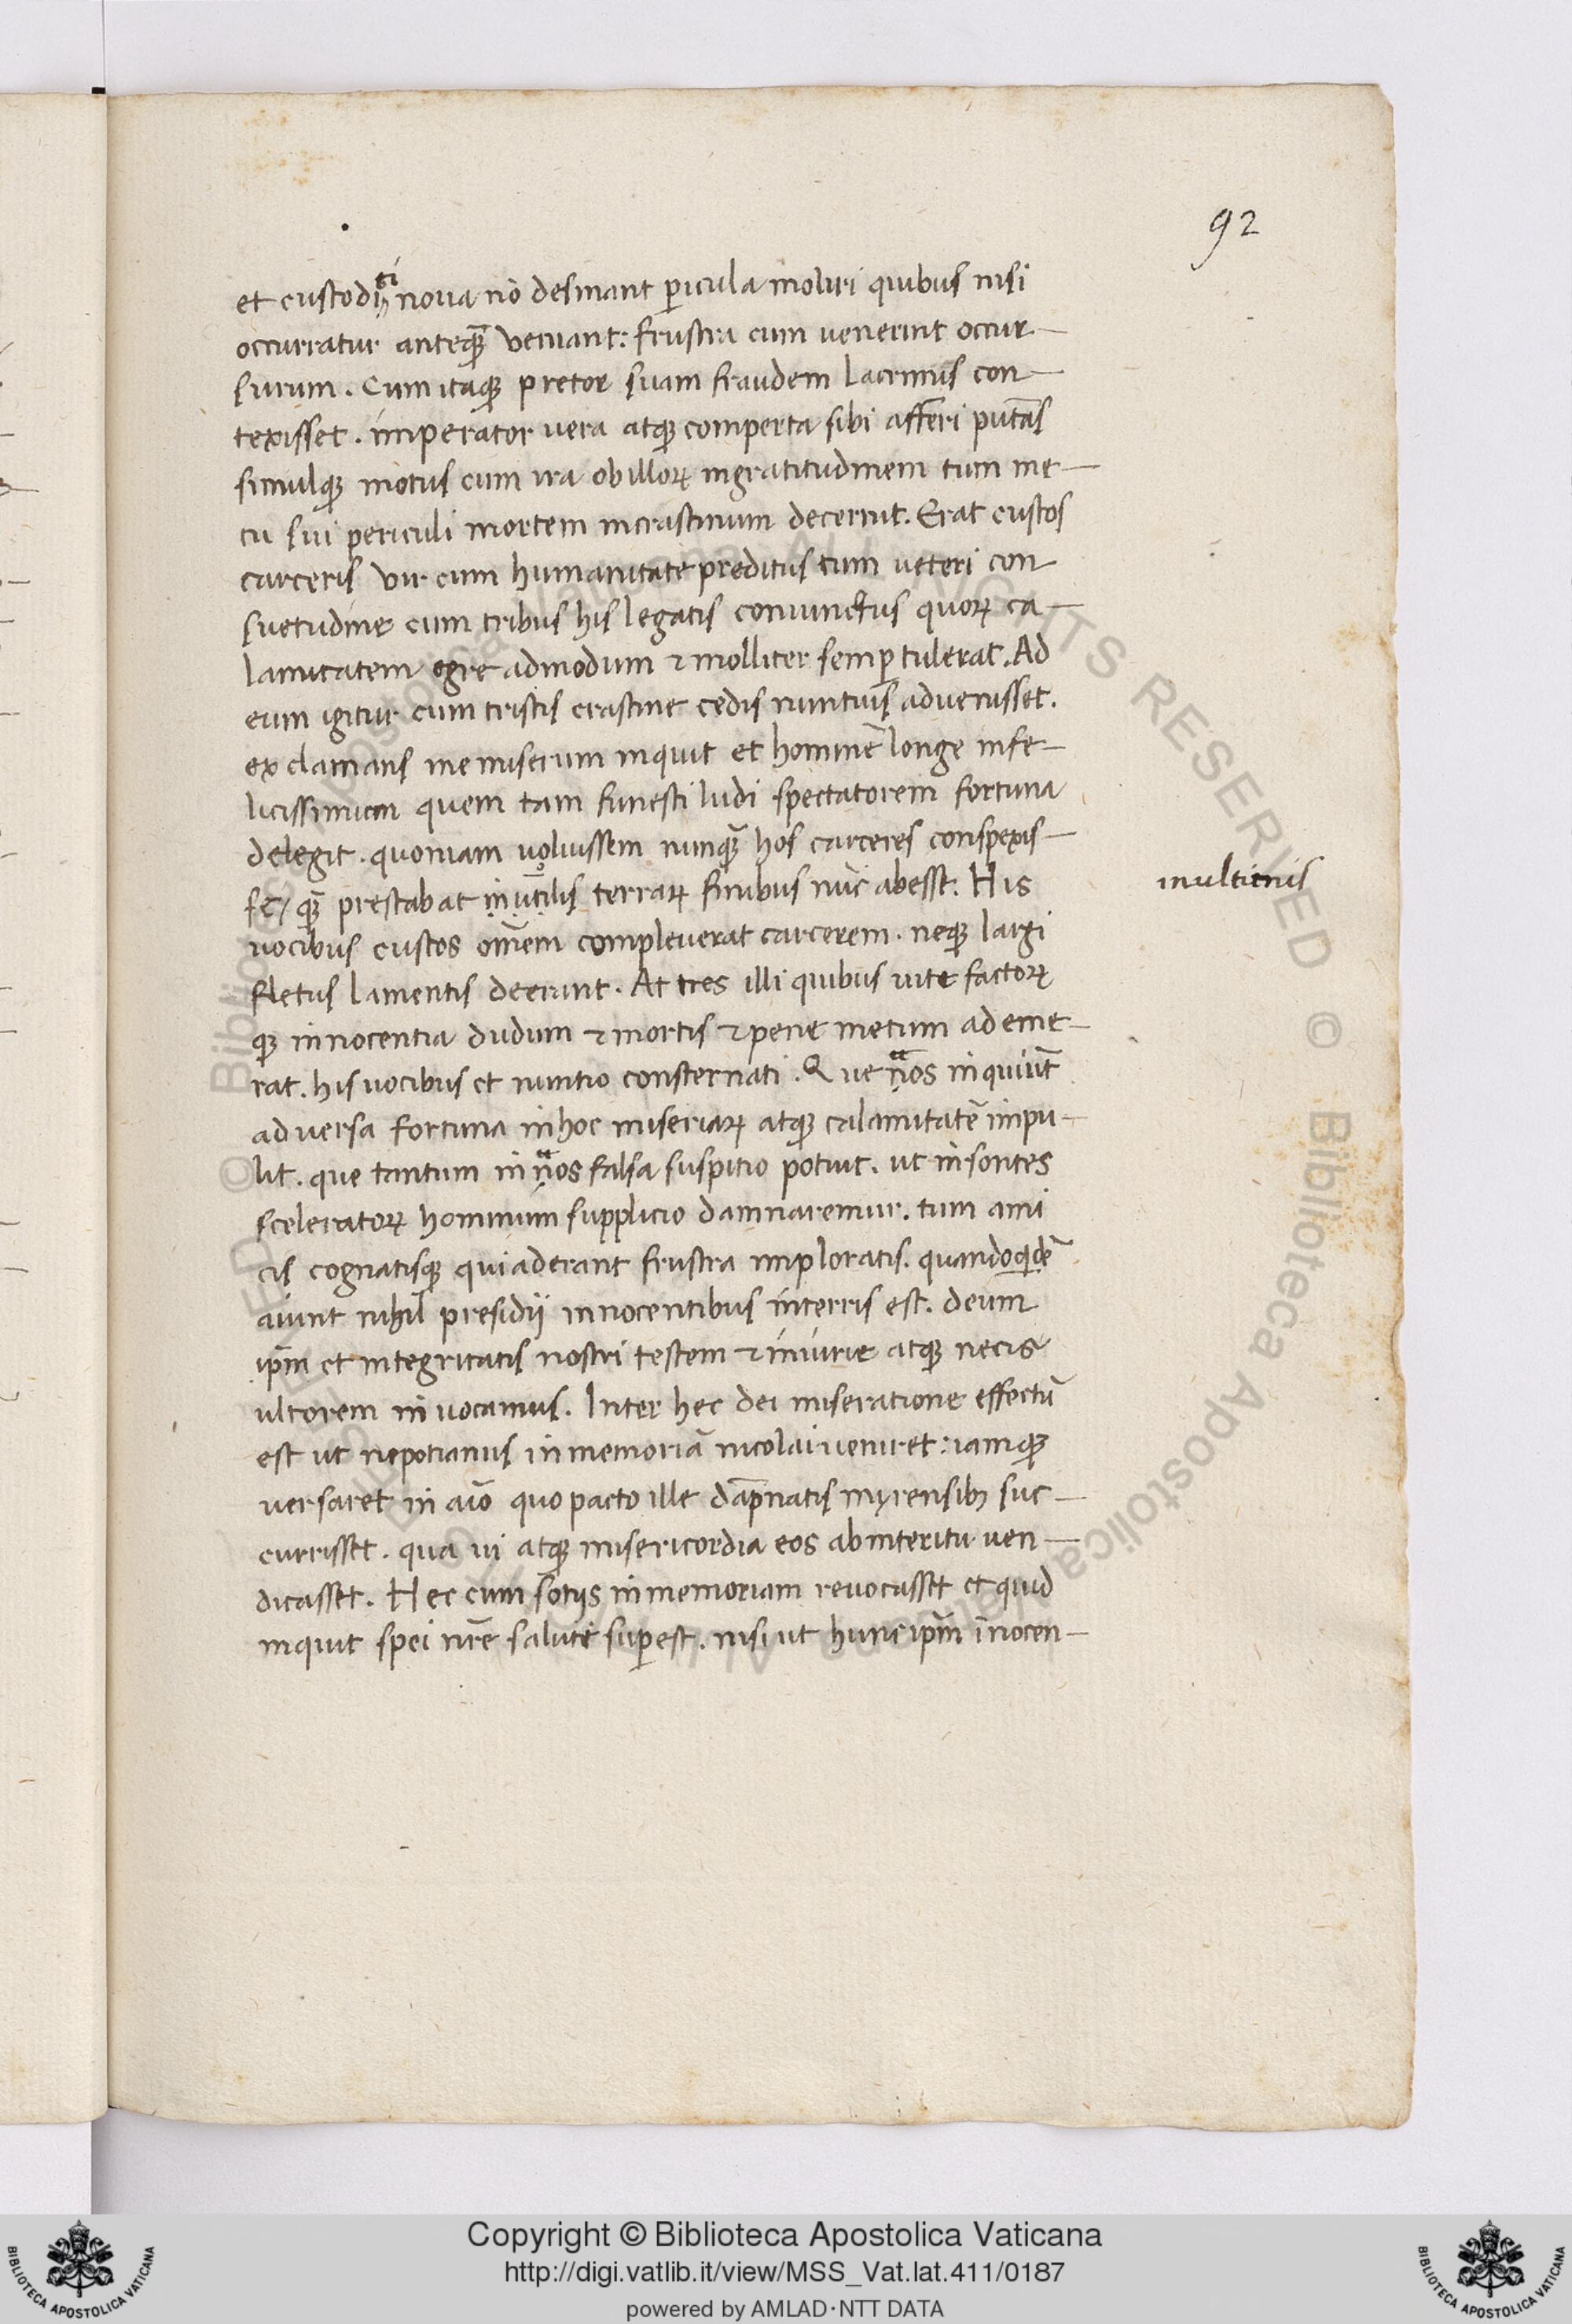 92
et custoditi noua nō desinant ꝑicula moliri quibus nisi
occurratur anteqꝫ̄ veniant: frustra cum uenerint occur-
surum. Cum itaqꝫ pretor suam fraudem lacrimis con-
texisset. imperator uera atqꝫ comperta sibi afferi putās
simulqꝫ motus cum ira ob illorꝝ ingratitudinem tum me-
tu sui periculi mortem incrastinum decernit. Erat custos
carceris vir cum humanitate preditus tum ueteri con
suetudine cum tribus his legatis coniunctus quorꝝ ca-
lamitatem egre admodum ⁊ molliter semꝑ tulerat. Ad
eum igitur cum tristis crastine cedis nuntius aduenisset.
exclamans me miserum inquit et hominē longe infe-
licissimum quem tam funesti ludi spectatorem fortuna
delegit. quoniam uoluissem nunqꝫ̄ hos carceres conspexis-
se/ qꝫ̄ prestabat inutilis terrarꝝ finibus nūc abesse. His
multienis
uocibus custos om̄em compleuerat carcerem. neqꝫ largi
fletus lamentis deerant. At tres illi quibus uite factorꝝ
qꝫ innocentia dudum ⁊ mortis ⁊ pene metum ademe-
rat. his uocibus et nuntio consternati. Que nos inquiūt
aduersa fortuna in hoc miseriarꝝ atqꝫ calamitatē impu-
lit. que tantum in nos falsa suspitio potuit. ut insontes
sceleratorꝝ hominum supplicio damnaremur. tum ami
cis cognatisqꝫ qui aderant frustra imploratis. quandoqidē
aiunt nihil presidij innocentibus interris est. deum
ip̄m et integritatis nostri testem ⁊ iniurie atqꝫ necis
ultorem inuocamus. Inter hec dei miseratione effectū
est ut nepotianus in memoriā nicolai ueniret: iamqꝫ
uersaret in aīo quo pacto ille dāpnatis myrensibꝫ suc-
currisset. qua ui atqꝫ misericordia eos ab interitu uen-
dicasset. Hec cum sotijs in memoriam reuocasset et quid
inquit spei nr̄e saluti suꝑest. nisi ut hunc ip̄m īnocen-
Copyright © Biblioteca Apostolica Vaticana
http://digi.vatlib.it/view/MSS_Vat.lat.411/0187
powered by AMLAD·NTT DATA